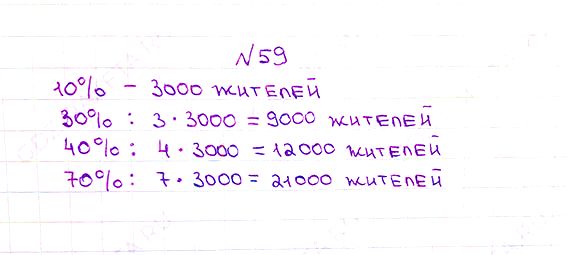 №59
10% - 3000 жителей
30% : 3 · 3000 = 9000 жителей
40% : 4 · 3000 = 12000 жителей
70% : 7 · 3000 = 21000 жителей